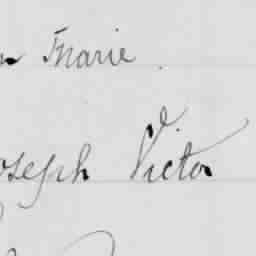 Marie.
oseph Victor